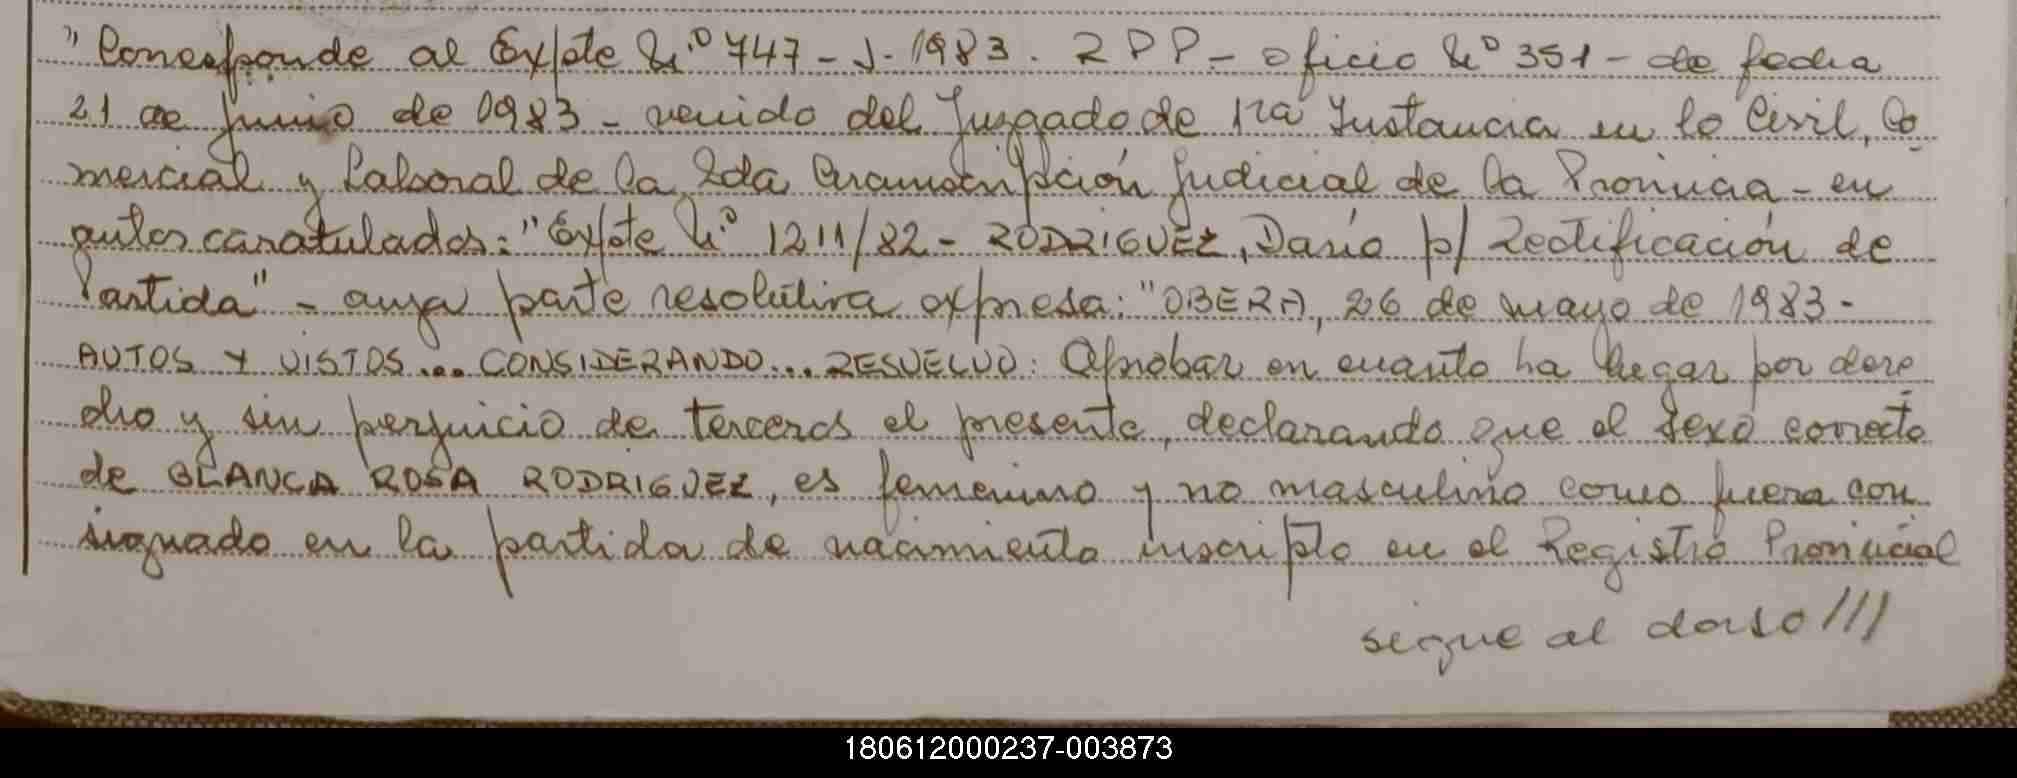 "Corresponde al Expte N.º 747 - J - 1983. RPP - oficio Nº 351 - de fecha
21 de junio de 1983 - venido del Juzgado de 1ra Instancia en lo Civil, Co
mercial y Laboral de la 2da Circunscripción Judicial de la Provincia - en
autos caratulados: "Expte N.º 1211/82 - RODRIGUEZ, Darío p/ Rectificación de
Partida" - cuya parte resolutiva expresa: "OBERA, 26 de mayo de 1983 -
AUTOS Y VISTOS... CONSIDERANDO... RESUELVO: Aprobar en cuanto ha lugar por dere
cho y sin perjuicio de terceros el presente, declarando que el sexo correcto
de BLANCA ROSA RODRIGUEZ, es femenino y no masculino como fuera con
signado en la partida de nacimiento inscripto en el Registro Provincial
sigue al dorso ///
180612000237-003873